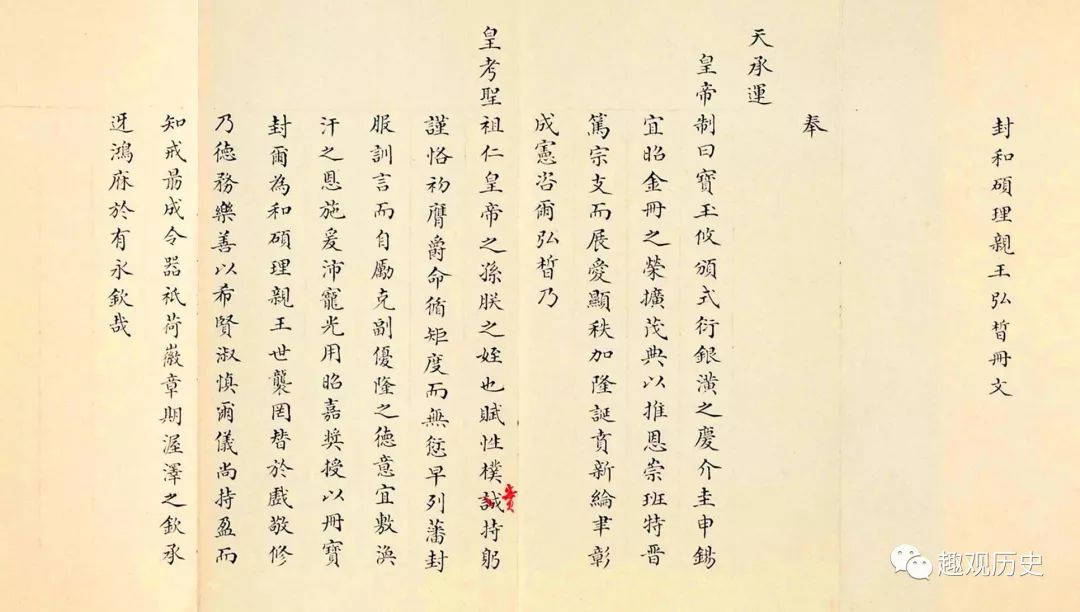 封和碩理親王弘晳冊文
奉
天承運
皇帝制曰寶玉攸頒式衍銀潢之慶介圭申錫
宜昭金冊之榮擴茂典以推恩崇班特晋
篤宗支而展愛顯秩加隆誕賁新綸聿彰
成憲咨爾弘晳乃
皇考聖祖仁皇帝之孫朕之姪也賦性樸誠持躬
實
謹恪初膺爵命循矩度而無愆早列藩封
服訓言而自勵克副優隆之德意宜敷渙
汗之恩施爰沛寵光用昭嘉獎授以冊寶
封爾為和碩理親王世襲罔替於戲敬修
乃德務樂善以希賢淑慎爾儀尚持盈而
知戒勗成令器祇荷徽章期渥澤之欽承
迓鴻庥於有永欽哉
趣观历史